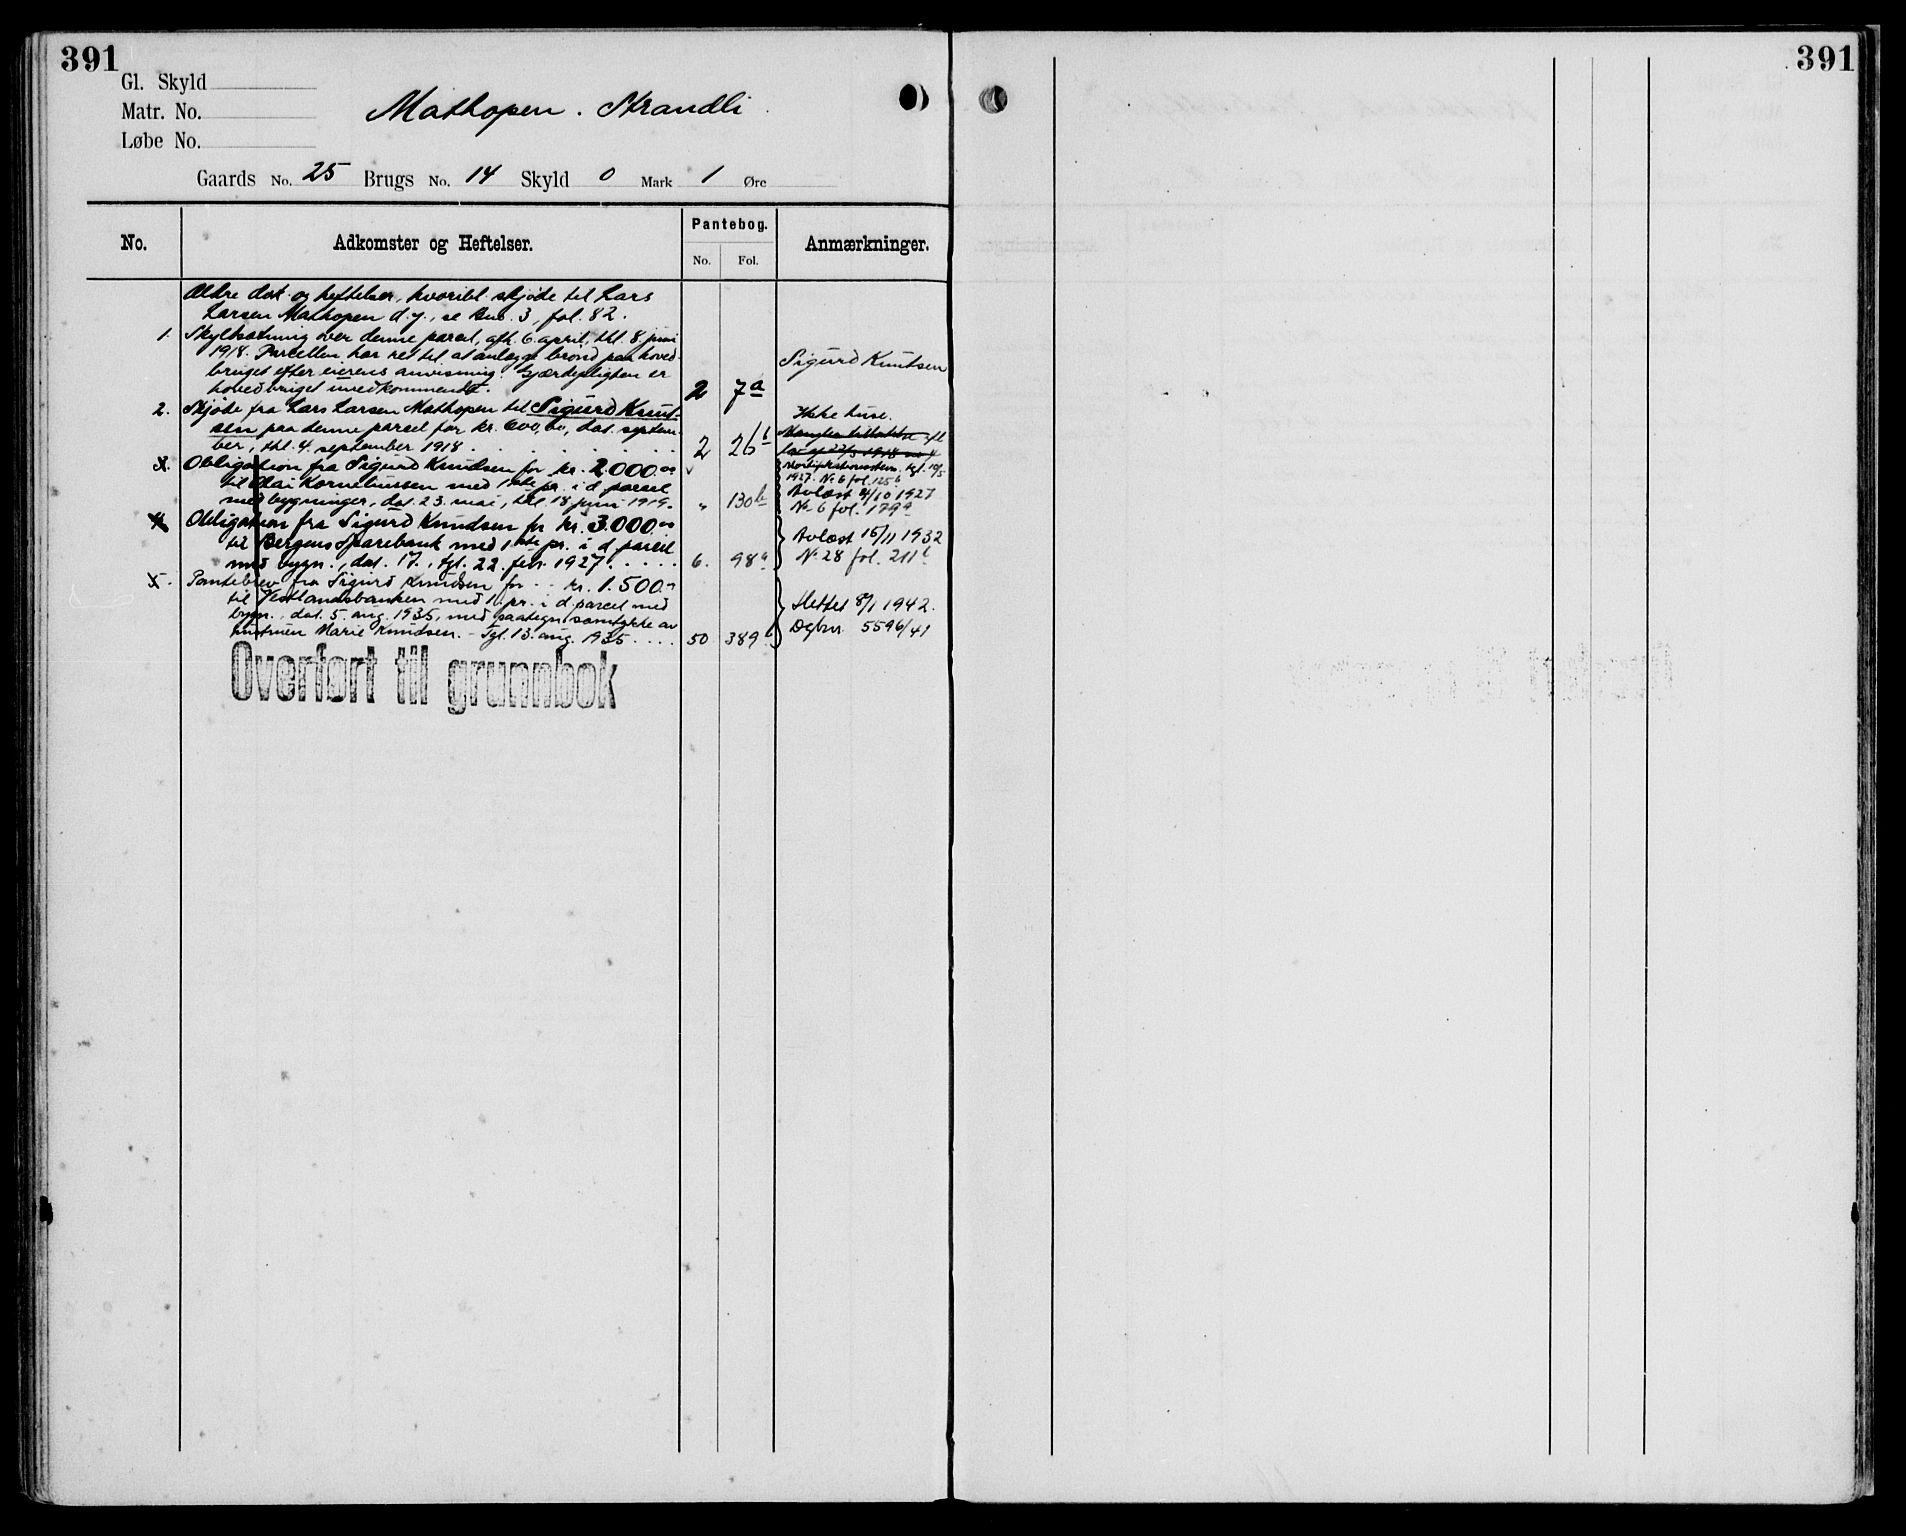 391
391
Gl. Skyld
Matr. No.
Løbe No.
Mathopen. Strandli.
Gaards No. 25 Brugs No. 14 Skyld 0 Mark 1 Øre
No.
Adkomster og Heftelser.
Pantebog.
No. Fol.
Anmærkninger.
Ældre dok. og heftelser, hvoribl. skjøde til Lars
Larsen Mathopen d.y., se 3, fol. 82.
1. Skyldsætning over denne parcel, afh. 6. april, thl. 8. juni
1918. Parcellen har ret til at anlægge brønd paa hoved-
bruget efter eierens anvisning. Gjærdepligten er
hovedbruget uvedkommende. 2 7a
Sigurd Knutsen
2. Skjøde fra Lars Larsen Mathopen til Sigurd Knut-
sen paa denne parcel for kr. 600,00, dat. septem-
ber, thl. 4. september 1918 2 26b
Ikke huse.
Mangler tilladelse efl
lov af 22/3 1918 no 4
3. Obligation fra Sigurd Knudsen for kr. 2.000.00
til Olai Korneliussen med 1ste pr. i d. parcel
med bygninger, dat. 23. mai, thl. 18 juni 1919. " 130b
tgl. 10/5
1927. No 6 fol. 125b
Avlæst 4/10 1927
No 6 fol. 179a
4. Obligation fra Sigurd Knudsen for kr. 3.000.00
til Bergens Sparebank med 1ste pr. i d. parcel
med bygn., dat. 17., tgl. 22. febr. 1927 6. 98a
Avlæst 15/11 1932
No 28 fol. 211b
5. Pantebrev fra Sigurd Knudsen for kr. 1.500.00
til Vestlandsbanken med 1. pr. i d. parcel med
bygn., dat. 5. aug. 1935, med paategn. samtykke av
hustruen Marie Knudsen. - Tgl. 13. aug. 1935 50 389
Slettet 8/1 1942.
Dgbnr. 5596/41
Overført til grunnbok